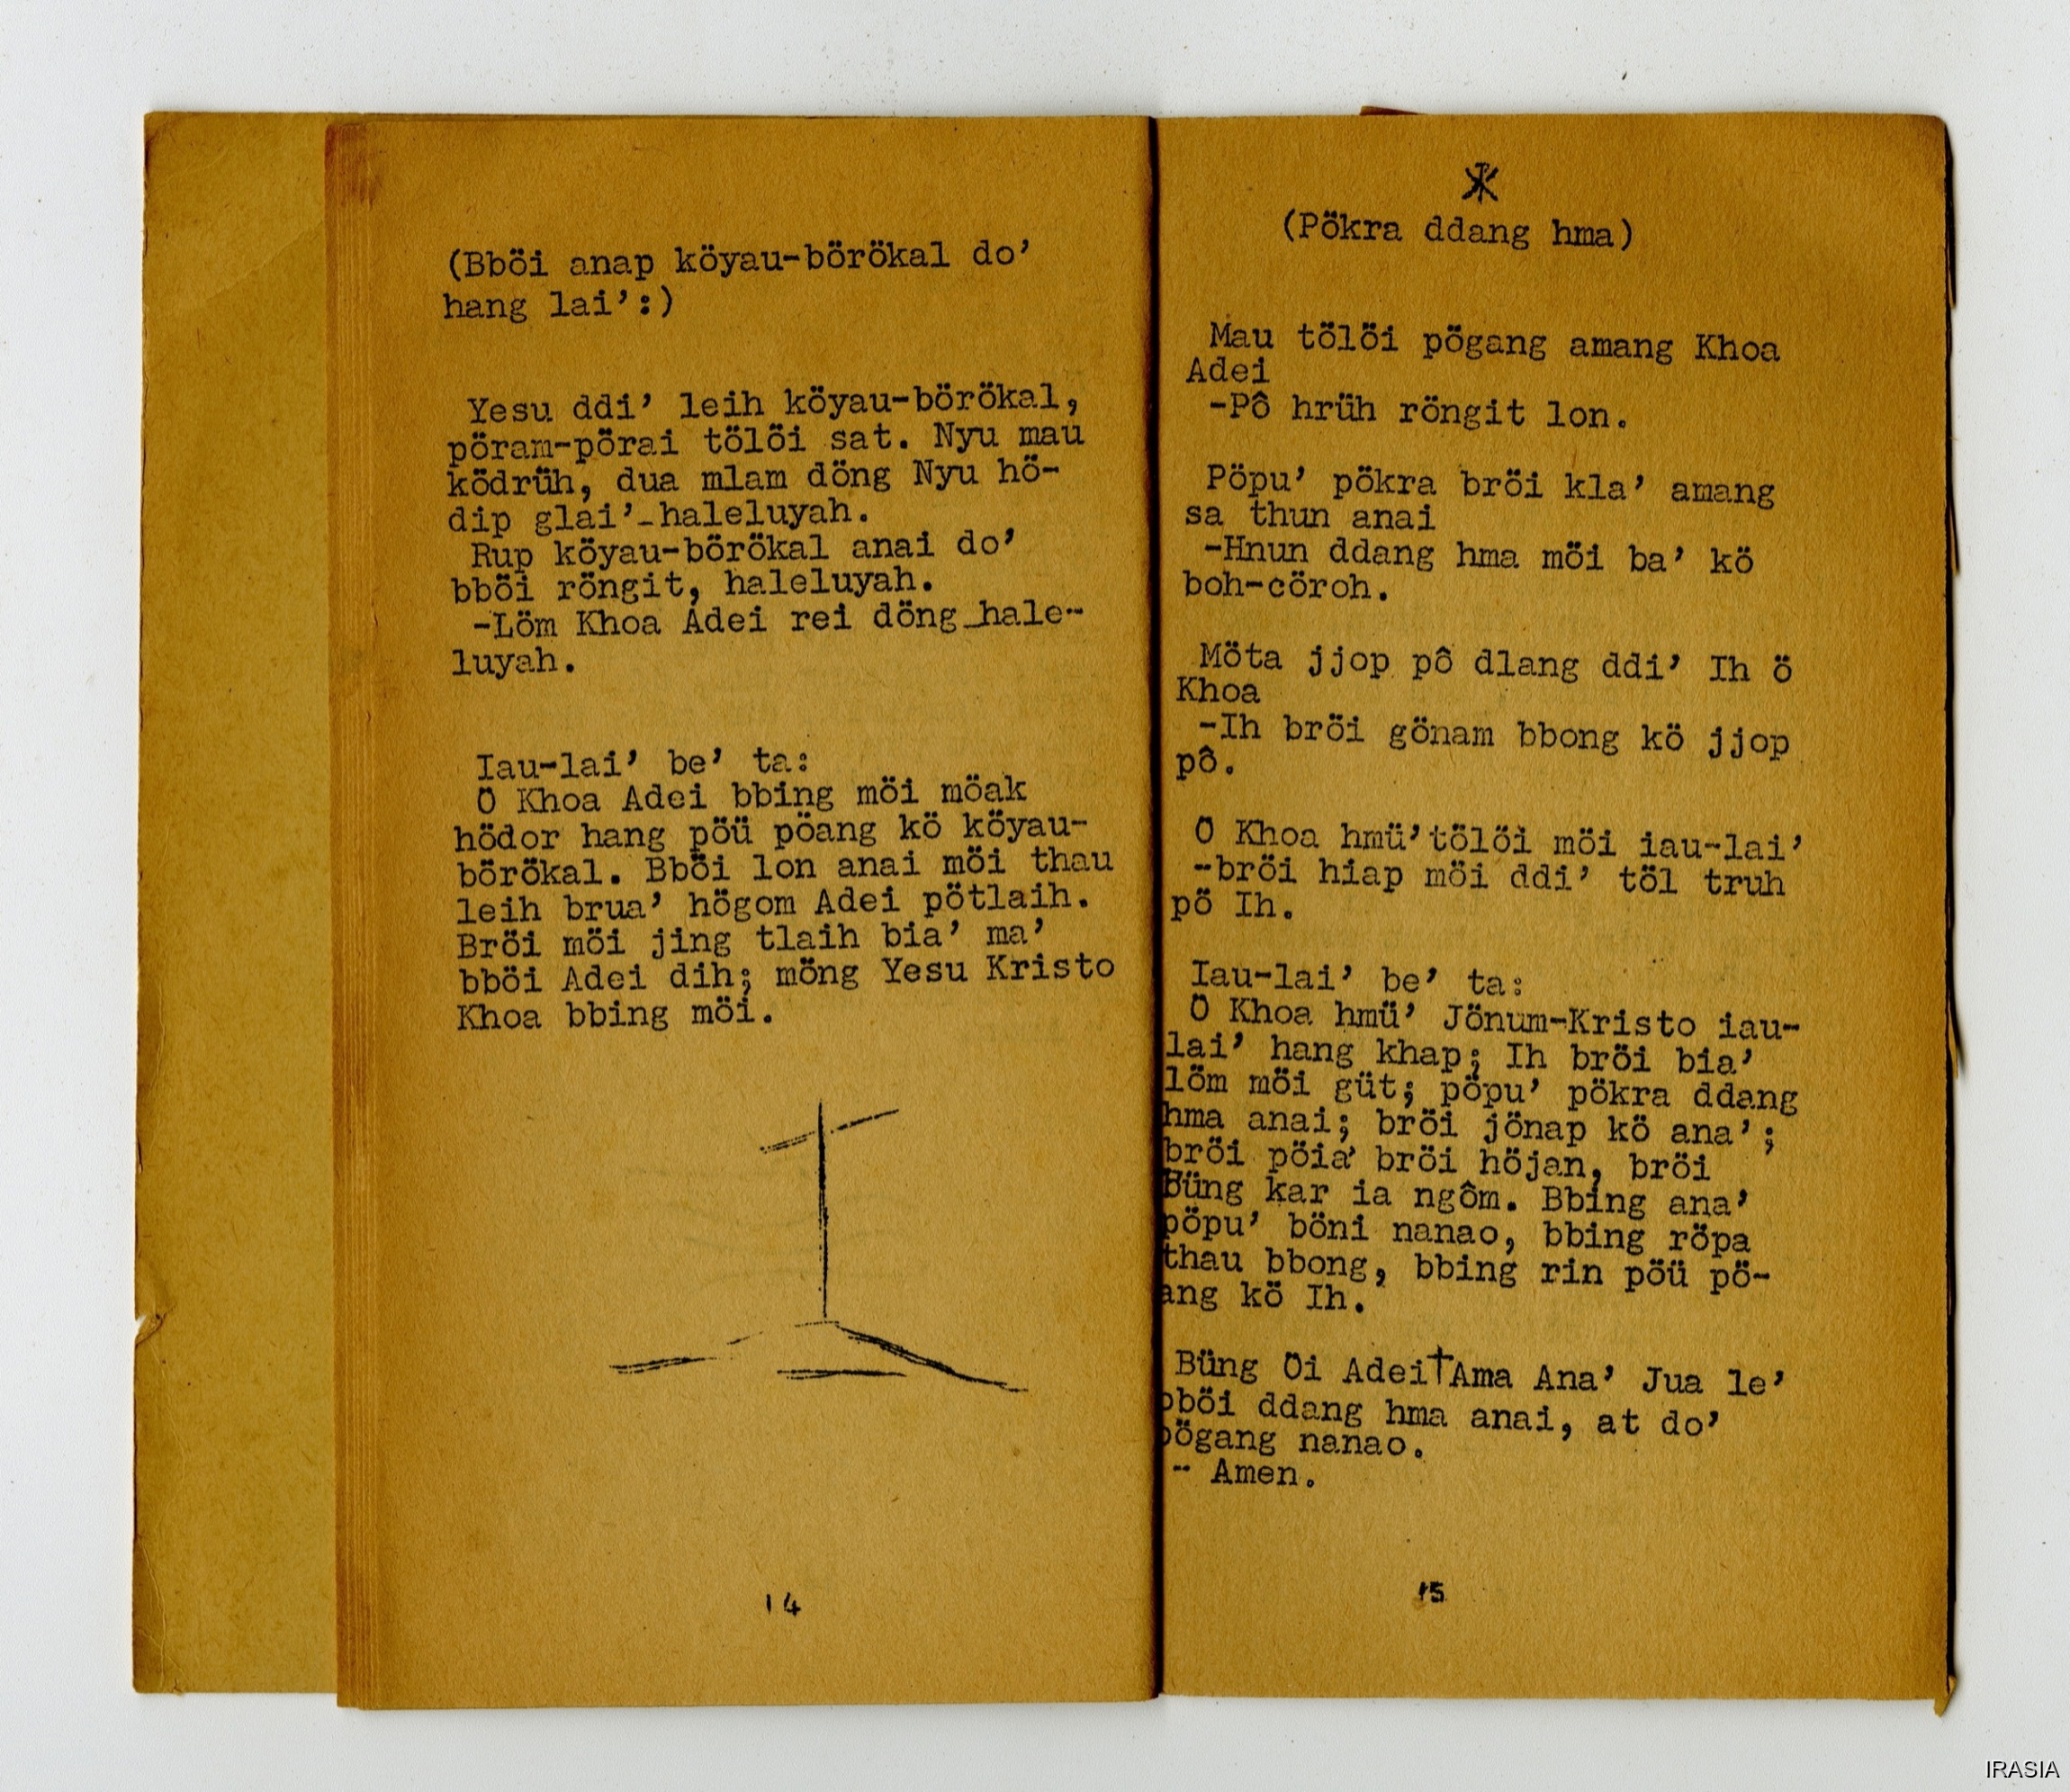 (Bböi anap köyau-börökal do’
hang lai’:)
Yesu ddi’ leih köyau-börökal,
pöram-pörai tölöi sat. Nyu mau
ködrüh, dua mlam döng Nyu hö-
dip glai’-haleluyah.
Rup köyau-börökal anai do’
bböi röngit, haleluyah.
-Löm Khoa Adei rei döng hale-
luyah.
Iau-lai’ be’ ta:
Ö Khoa Adei bbing möi möak
hödor hang pöü pöang kö köyau-
börökal. Bböi lon anai möi thau
leih brua’ högom Adei pötlaih.
Bröi möi jing tlaih bia’ ma’
bböi Adei dih; möng Yesu Kristo
Khoa bbing möi.
14
(Pökra ddang hma)
Mau tölöi pögang amang Khoa
Adei
-Pô hrüh röngit lon.
Pöpu’ pökra bröi kla’ amang
sa thun anai
-Hnun ddang hma möi ba’ kö
boh-cöroh.
Möta jjop pô dlang ddi’ Ih ö
Khoa
-Ih bröi gönam bbong kö jjop
pô.
Ö Khoa hmü’ tölöi möi iau-lai’
-bröi hiap möi ddi’ töl truh
pö Ih.
Iau-lai’ be’ ta:
Ö Khoa hmü’ Jönum-Kristo iau-
lai’ hang khap; Ih bröi bia’
löm möi güt; pöpu’ pökra ddang
hma anai; bröi jönap kö ana’;
bröi pöia’ bröi höjan, bröi
Büng kar ia ngôm. Bbing ana’
pöpu’ böni nanao, bbing röpa
thau bbong, bbing rin pöü pö-
ang kö Ih.
Büng Öi Adei†Ama Ana’ Jua le’
bböi ddang hma anai, at do’
pögang nanao.
- Amen.
15
IRASIA